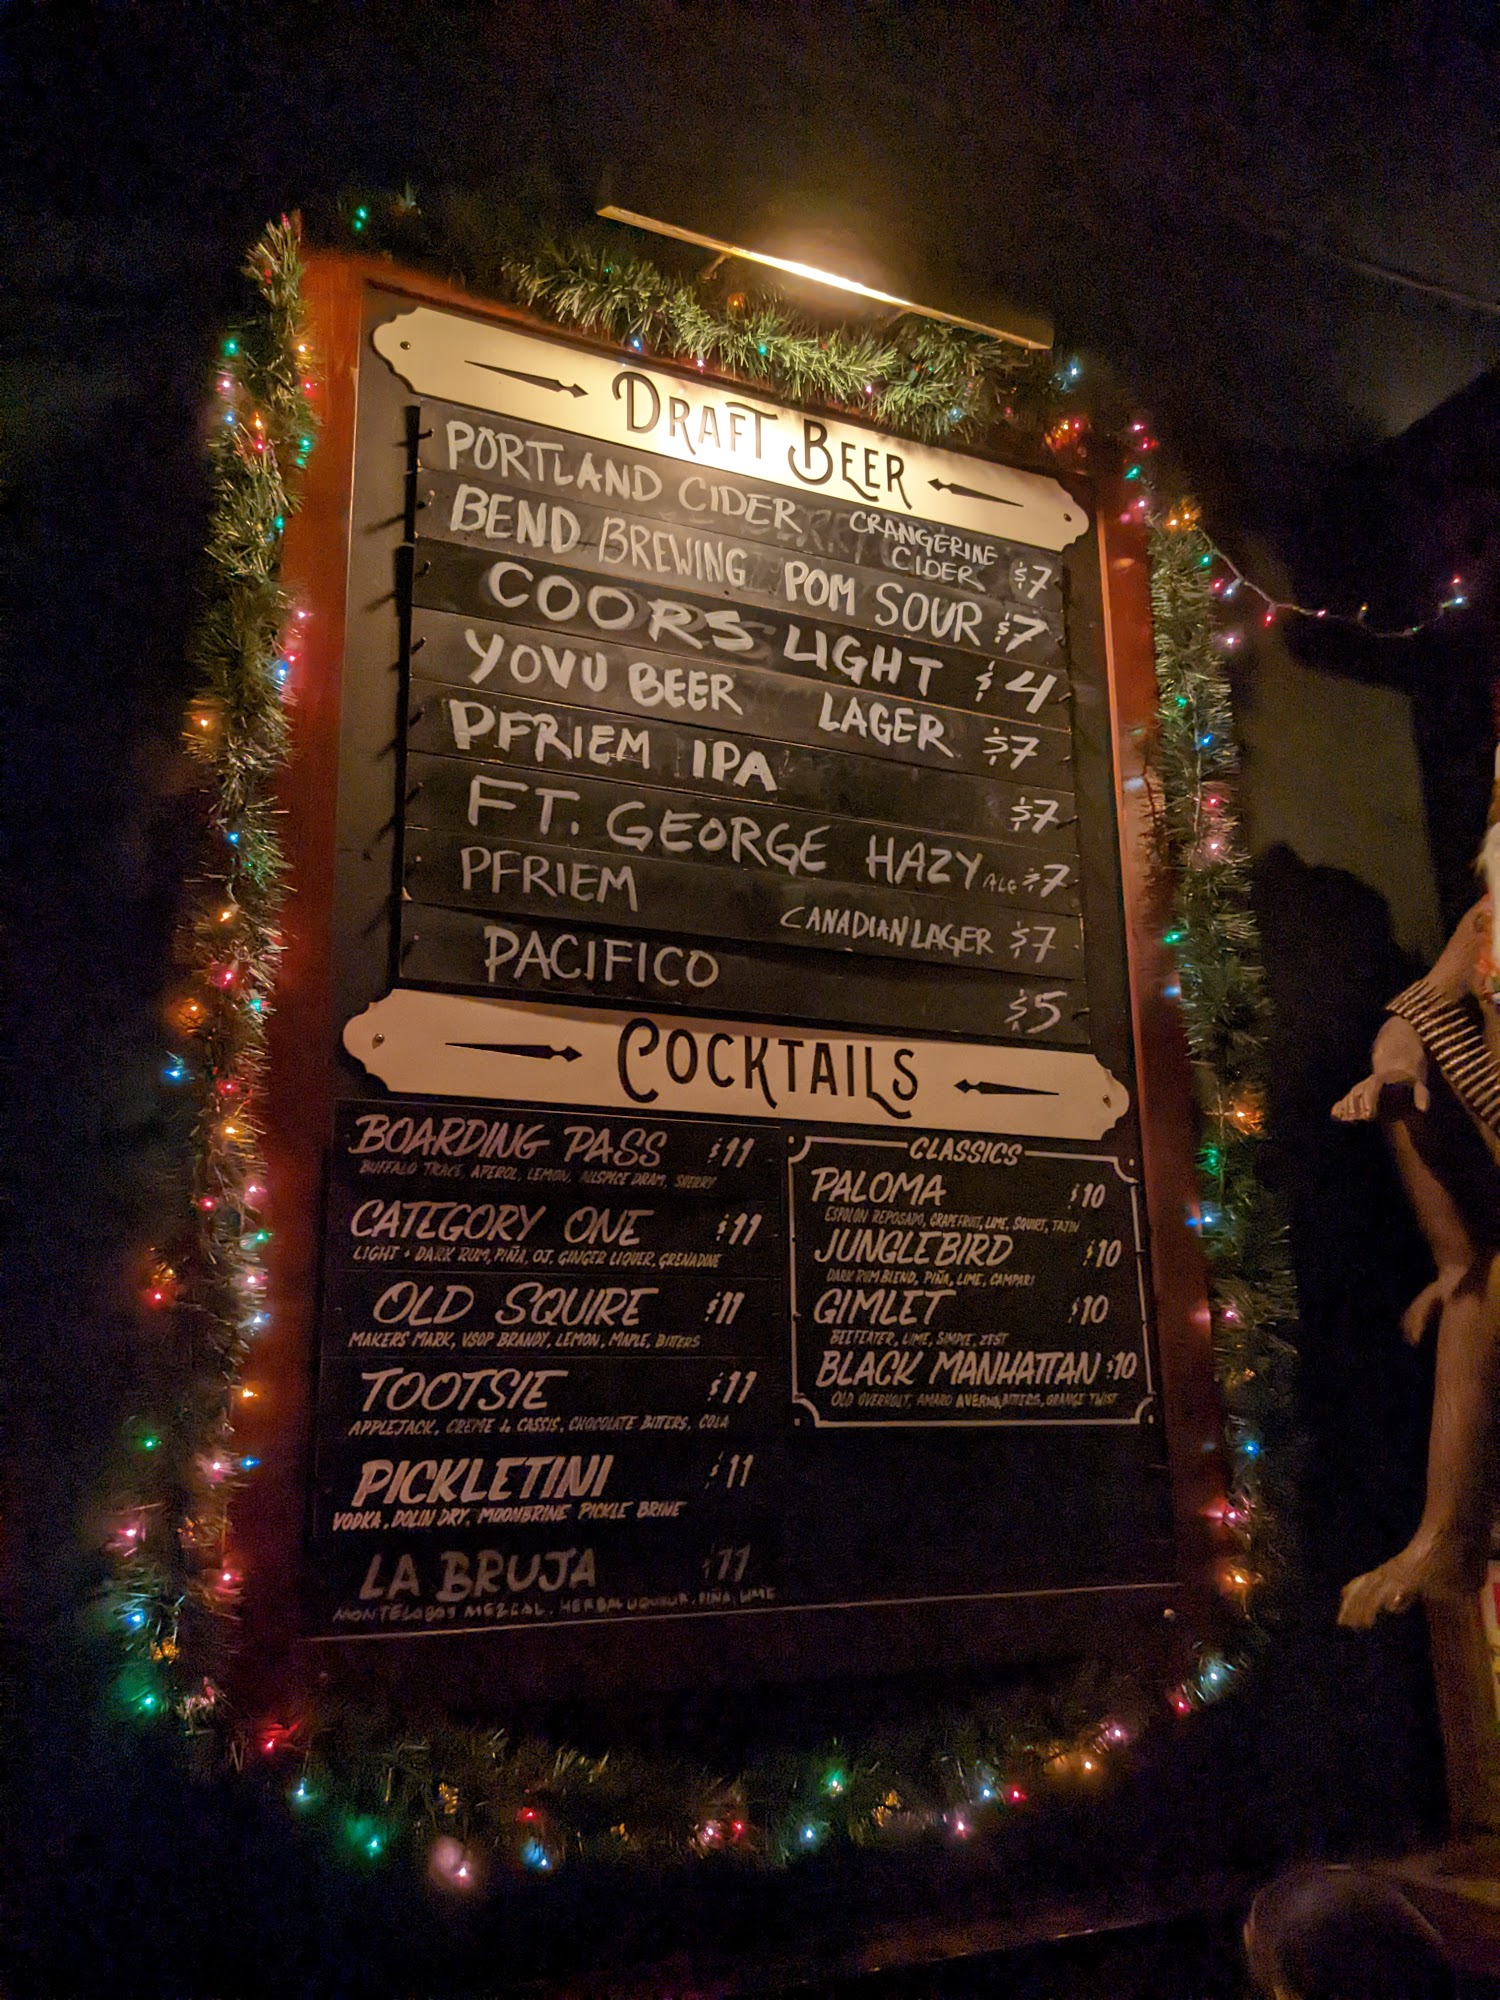 DRAFT BEER
PORTLAND CIDER CRANGERINE CIDER $7
BEND BREWING POM SOUR $7
COORS LIGHT $4
YOVU BEER LAGER $7
PFRIEM IPA $7
FT. GEORGE HAZY ALE $7
PFRIEM CANADIAN LAGER $7
PACIFICO $5
COCKTAILS
BOARDING PASS $11
BUFFALO TRACE, APEROL, LEMON, ALLSPICE DRAM, SHERRY
CATEGORY ONE $11
LIGHT + DARK RUM, PIÑA, OJ, GINGER LIQUER, GRENADINE
OLD SQUIRE $11
MAKERS MARK, VSOP BRANDY, LEMON, MAPLE, BITTERS
TOOTSIE $11
APPLEJACK, CREME de CASSIS, CHOCOLATE BITTERS, COLA
PICKLETINI $11
VODKA, DOLIN DRY, MOONBRINE PICKLE BRINE
LA BRUJA $11
MONTELOBOS MEZCAL, HERBAL LIQUEUR, PIÑA, LIME
CLASSICS
PALOMA $10
ESPOLON REPOSADO, GRAPEFRUIT, LIME, SQUIRT, TAJIN
JUNGLEBIRD $10
DARK RUM BLEND, PIÑA, LIME, CAMPARI
GIMLET $10
BEEFEATER, LIME, SIMPLE, ZEST
BLACK MANHATTAN $10
OLD OVERHOLT, AMARO AVERNA, BITTERS, ORANGE TWIST